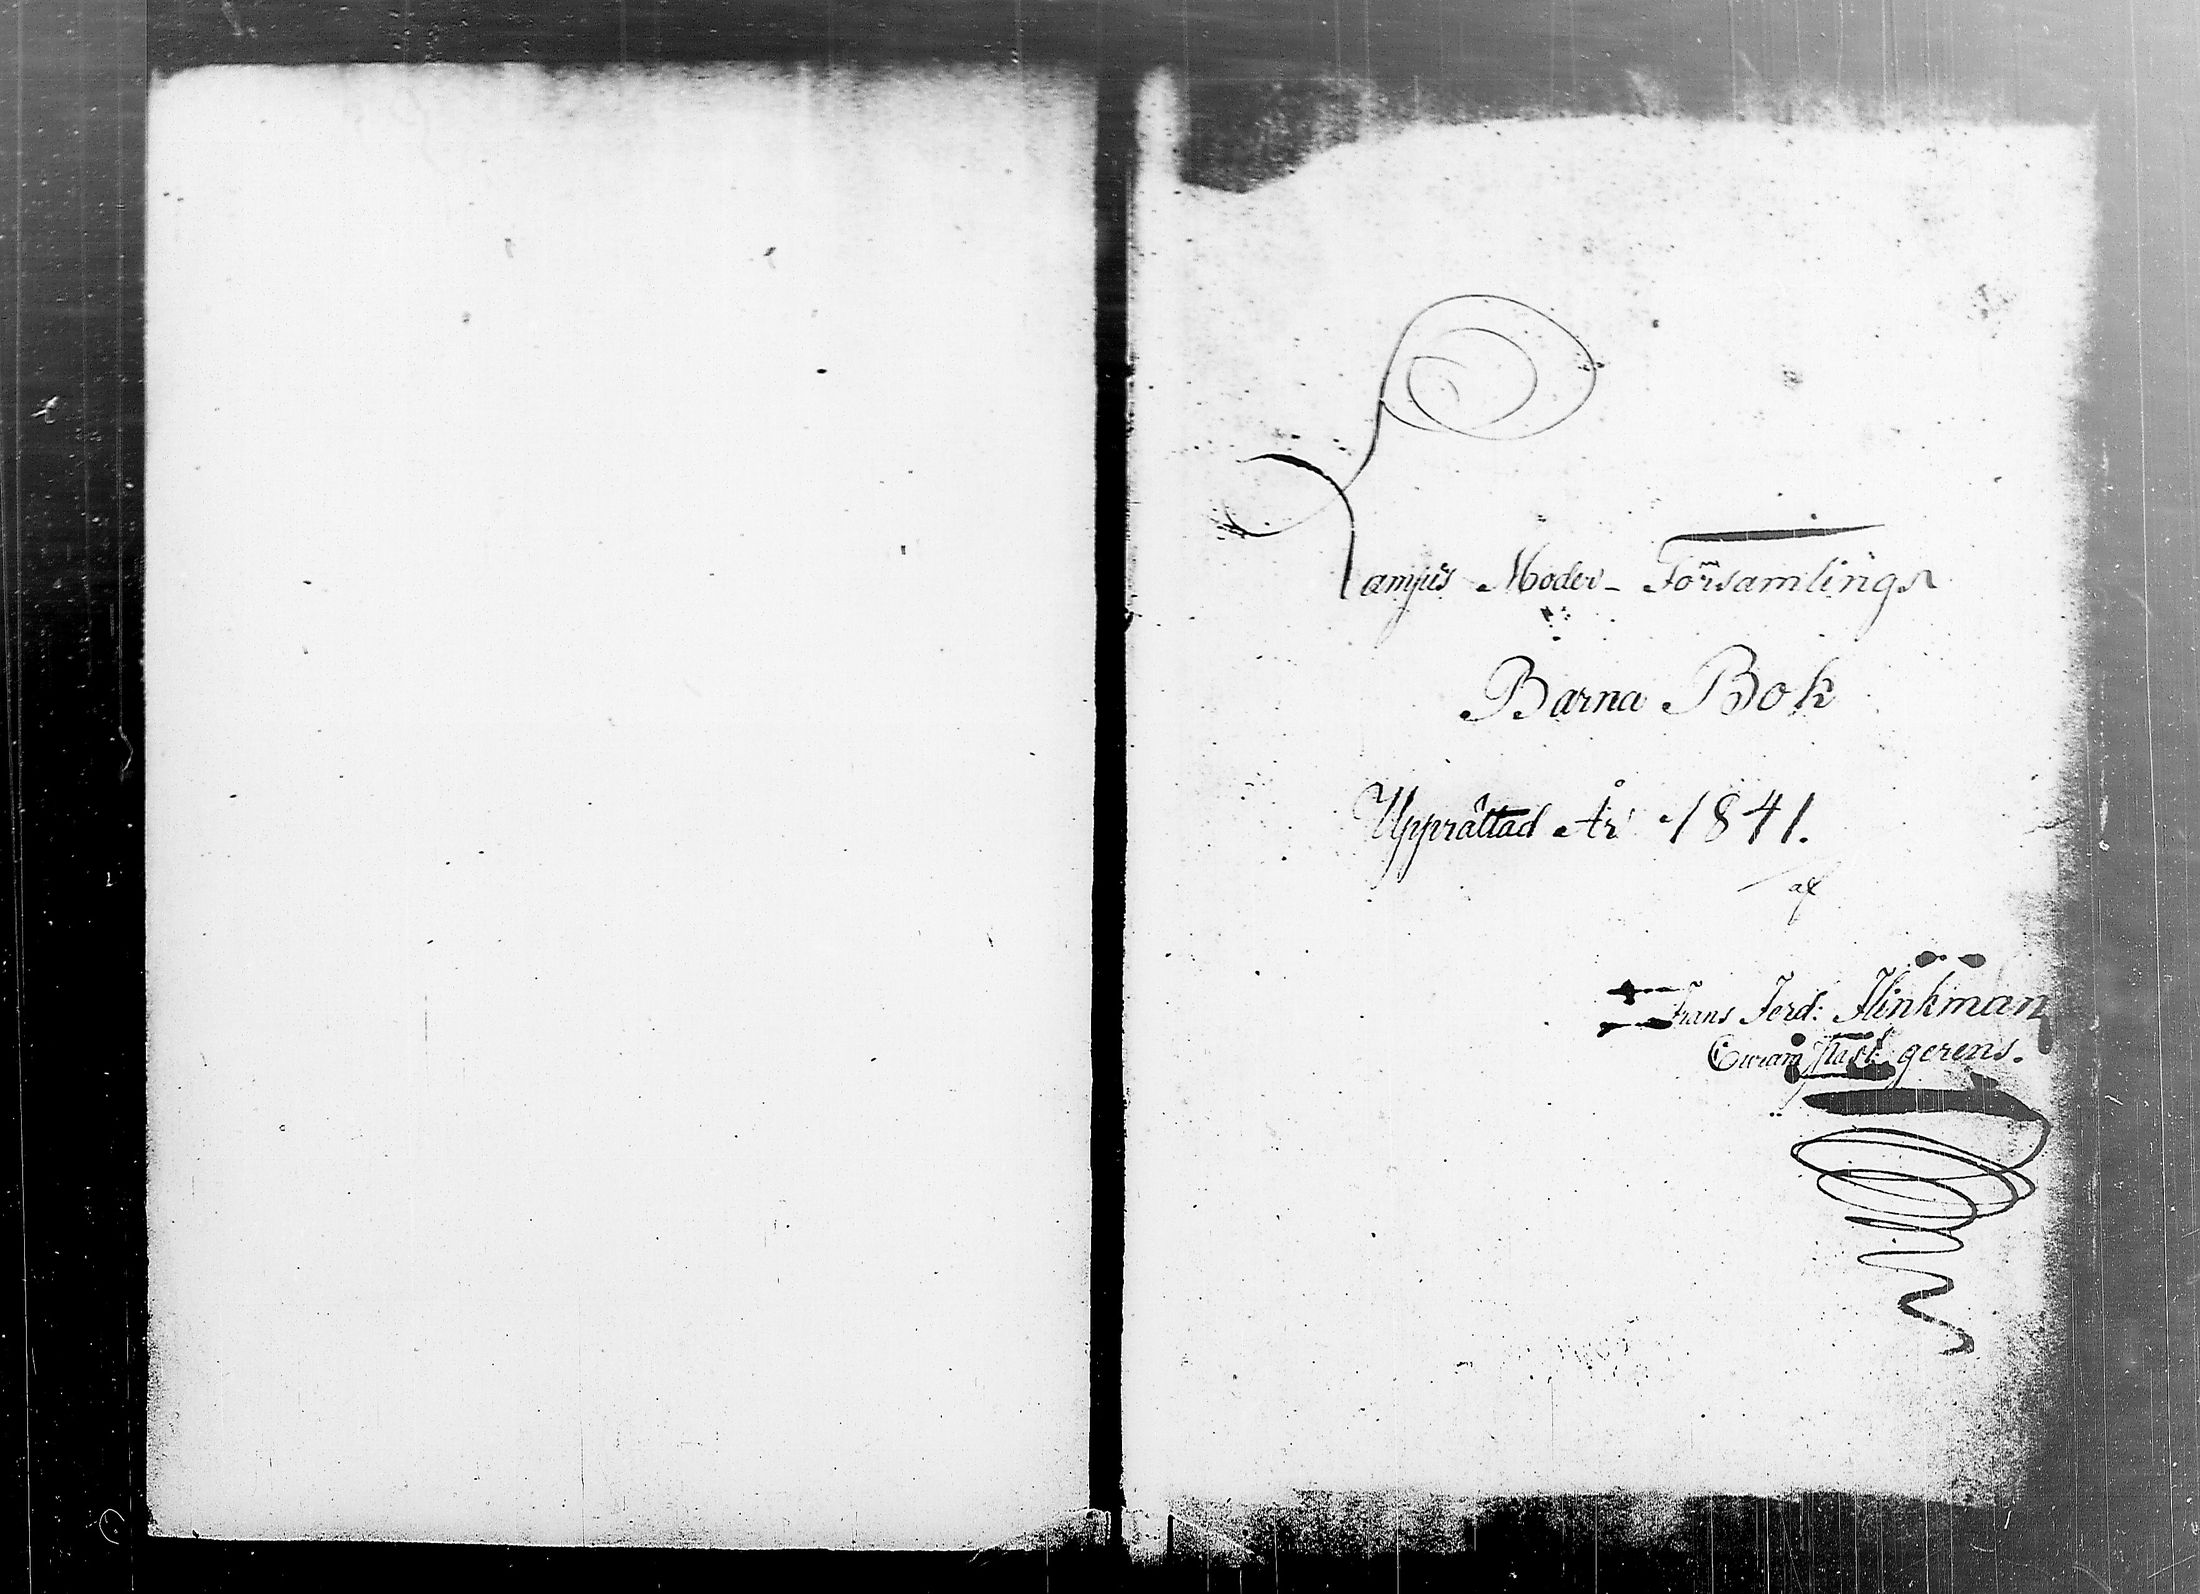 Lampis Moder-Församlings
Barna Bok
Upprättad År 1841.
af
Frans Ferd: Flinkman
Curam Past: gerens.